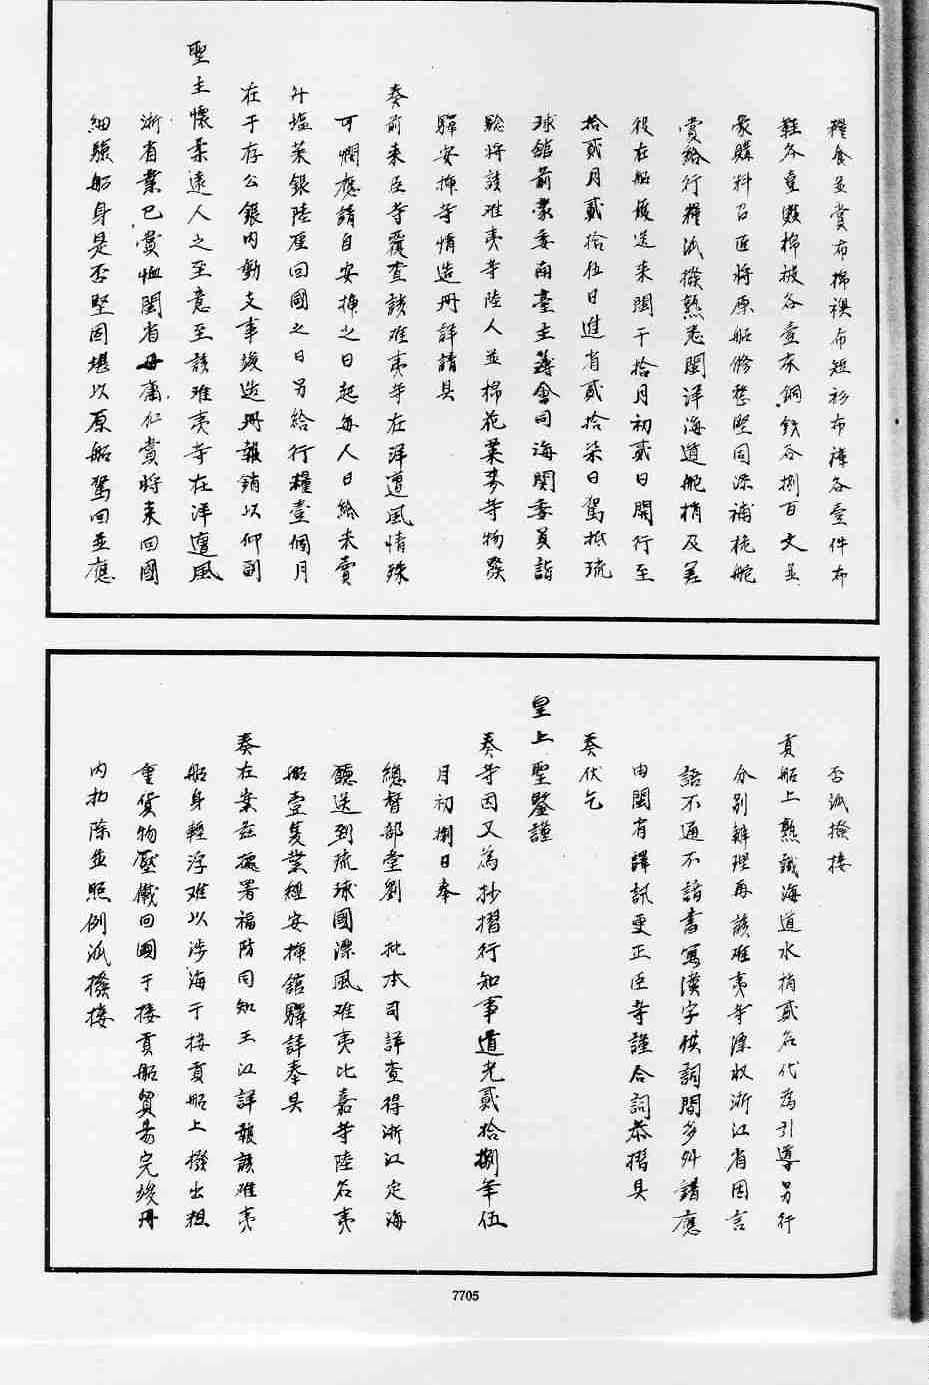 糧食並賞布棉襖布短衫布褲各壹件布
鞋各壹雙棉被各壹床銅錢各捌百文並
蒙購料召匠將原船修整堅固添補桅舵
賞給行糧派撥熟悉閩洋海道舵梢及差
役在船護送來閩于拾月初貳日開行至
拾貳月貳拾伍日進省貳拾柒日駕抵琉
球館前蒙委南臺主簿會同海關委員詣
驗將該难夷等陸人並棉花菜麥等物發
驛安揷等情造册詳請具
奏前來臣等覆查該难夷等在洋遭風情殊
可憫應請自安揷之日起每人日給米壹
升塩菜銀陸厘回國之日另給行糧壹個月
在于存公銀內動支事竣造册報銷以仰副
聖主懷柔遠人之至意至該难夷等在洋遭風
浙省業已賞恤閩省毋庸仁賞將來回國
細驗船身是否堅固堪以原船駕回並應
否派撥接
貢船上熟識海道水梢貳名代為引導另行
分別辦理再該难夷等漂收浙江省因言
語不通不諳書寫漢字供詞間多舛錯應
由閩省譯訊更正臣等謹合詞恭摺具
奏伏乞
皇上聖鑒謹
奏等因又為抄摺行知事道光貳拾捌年伍
月初捌日奉
總督部堂劉 批本司詳查得浙江定海
廳送到琉球國漂風难夷比嘉等陸名夷
船壹隻業經安揷館驛詳奉具
奏在案茲據署福防同知王江詳報該难夷
船身輕浮难以涉海于接貢船上撥出粗
重貨物壓儎回國于接貢船貿易完竣册
內扣除並照例派撥接
7705